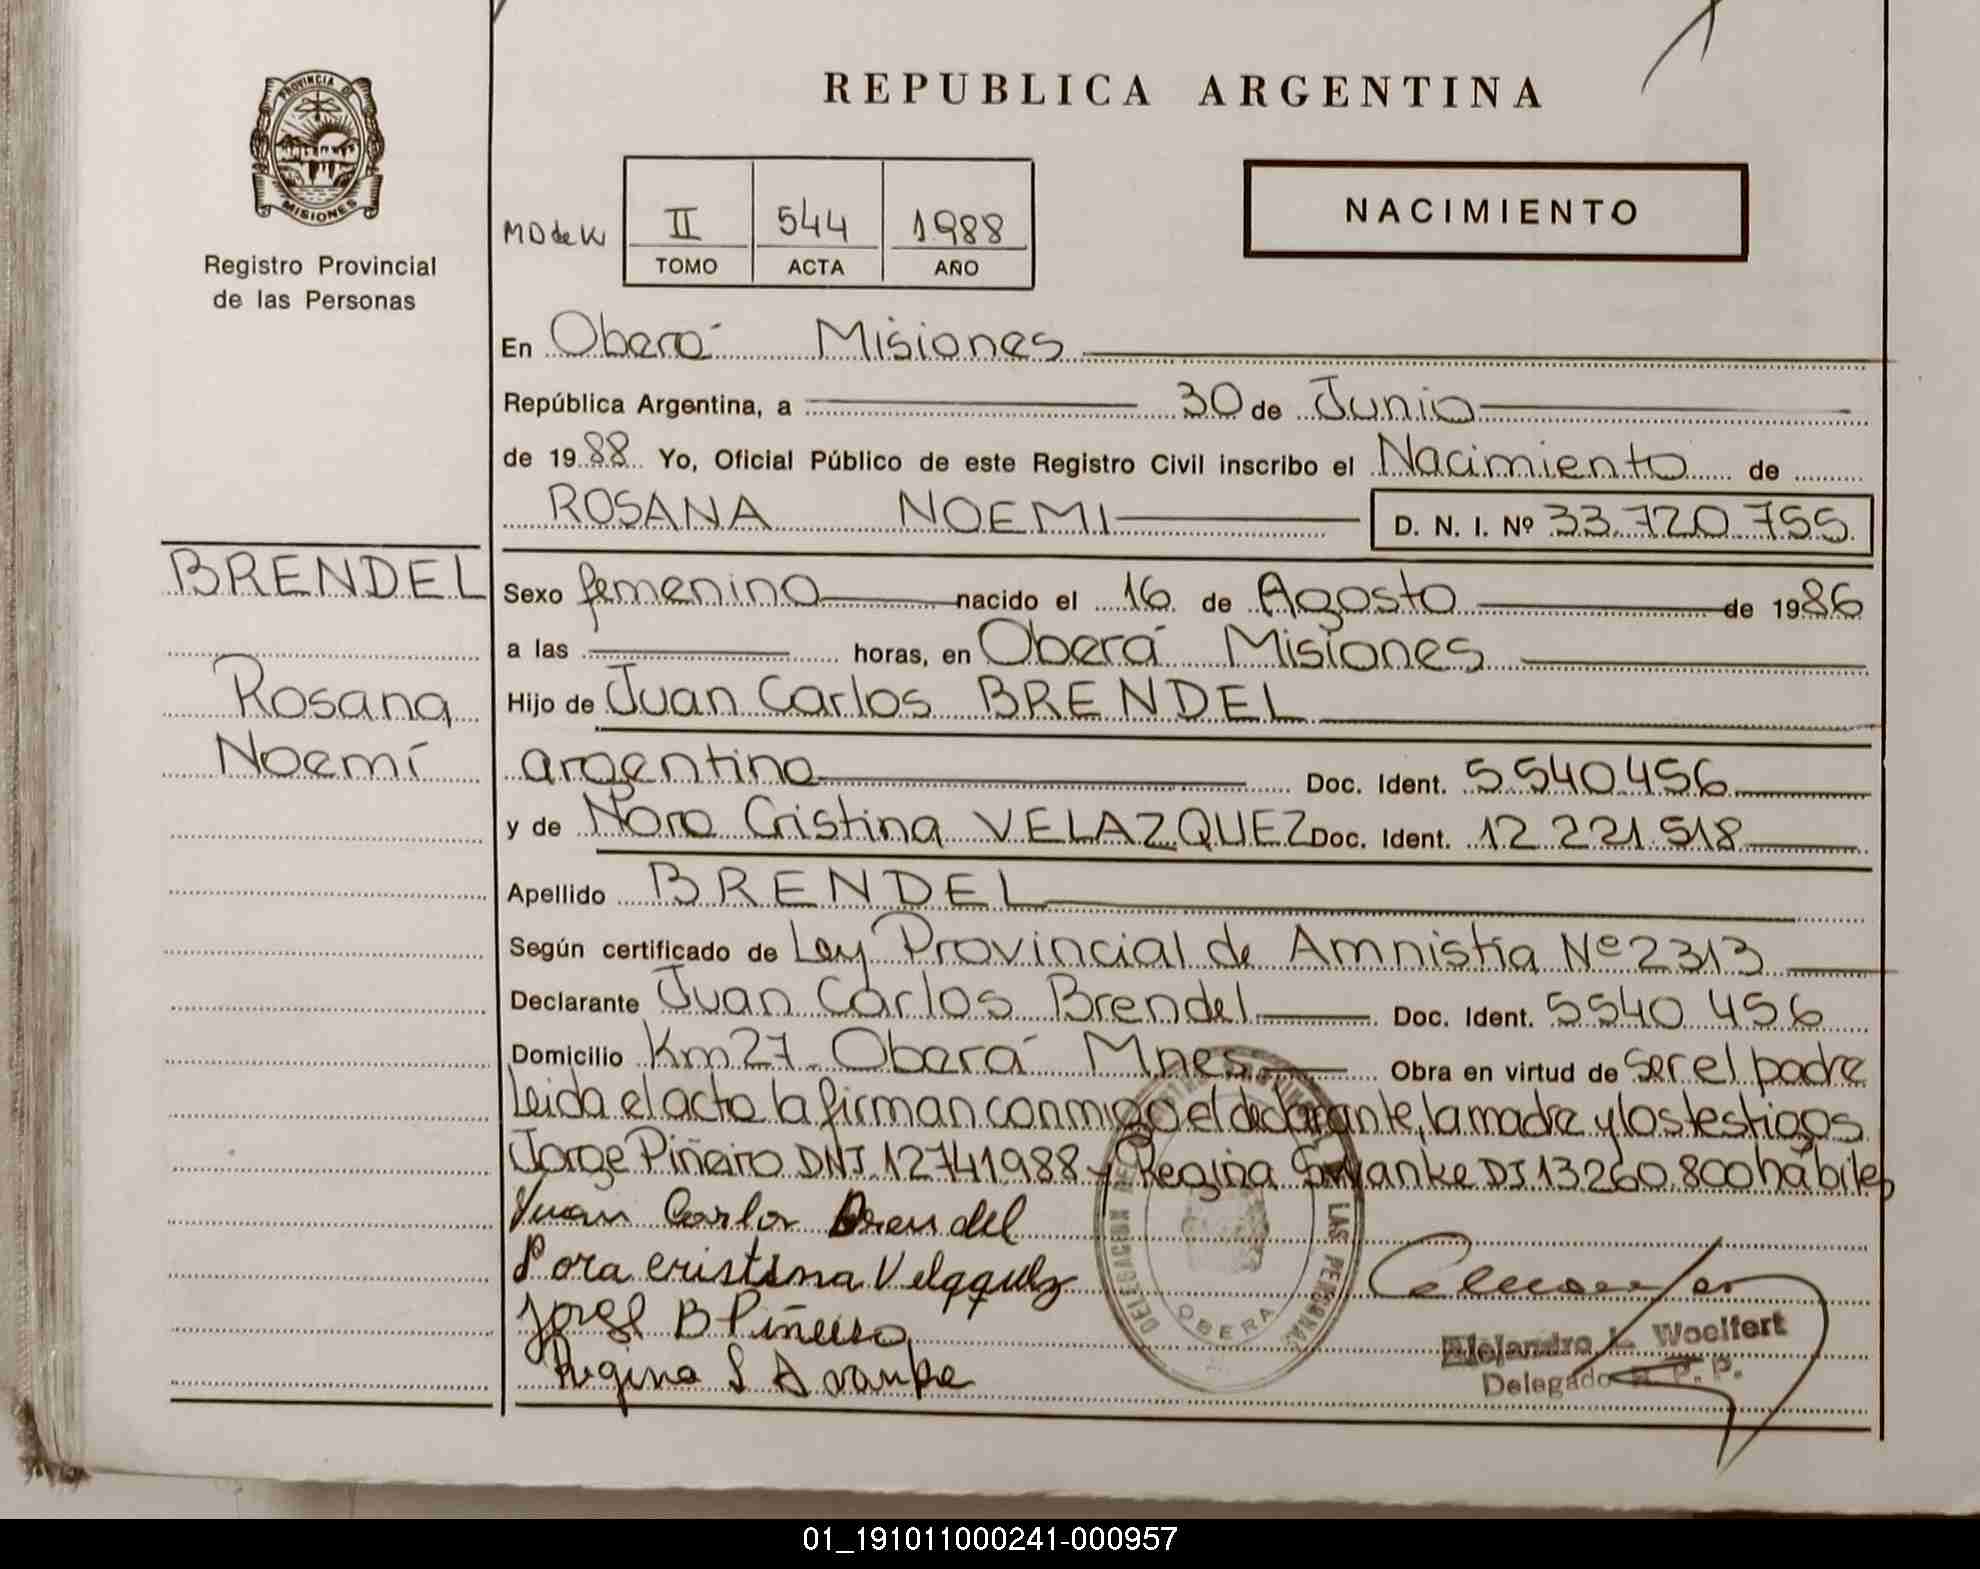 REPUBLICA ARGENTINA
PROVINCIA DE
MISIONES
Registro Provincial
de las Personas
II 544 1988
TOMO ACTA AÑO
NACIMIENTO
En Oberá Misiones
República Argentina, a 30 de Junio
de 1988 Yo, Oficial Público de este Registro Civil inscribo el Nacimiento de
ROSANA NOEMI D. N. I. Nº 33.720.755
BRENDEL
Rosana
Noemí
Sexo femenino nacido el 16 de Agosto de 1986
a las horas, en Oberá Misiones
Hijo de Juan Carlos BRENDEL
argentino Doc. Ident. 5540456
y de Nora Cristina VELAZQUEZ Doc. Ident. 12.221.518
Apellido BRENDEL
Según certificado de Ley Provincial de Amnistía Nº 2313
Declarante Juan Carlos Brendel Doc. Ident. 5540 456
Domicilio Km 27 Oberá Mnes Obra en virtud de ser el padre
Leida el acta la firman conmigo el declarante, la madre y los testigos
Jorge Piñeiro DNI 12741988 y Regina DI 13260.800 hábiles
Juan Carlos Brendel
Nora cristina
Jorge B Piñeiro
Regina S
DELEGACION LAS PERSONAS
OBERA
Alejandro L. Woolfert
Delegado R. P. P.
01_191011000241-000957